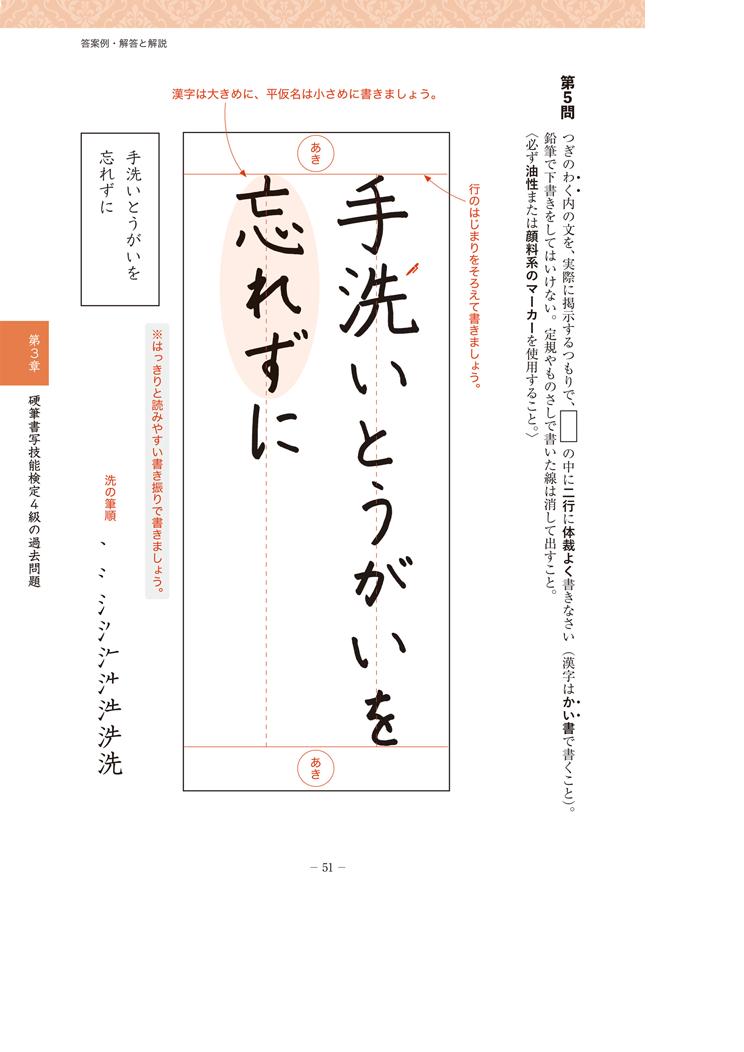 答案例・解答と解説
第5問
つぎのわく内の文を、実際に掲示するつもりで、　の中に二行に体裁よく書きなさい（漢字はかい書で書くこと）。
鉛筆で下書きをしてはいけない。定規やものさしで書いた線は消して出すこと。
〈必ず油性または顔料系のマーカーを使用すること。〉
漢字は大きめに、平仮名は小さめに書きましょう。
行のはじまりをそろえて書きましょう。
あき
手洗いとうがいを
忘れずに
あき
手洗いとうがいを
忘れずに
※はっきりと読みやすい書き振りで書きましょう。
洗の筆順
洗
第3章
硬筆書写技能検定4級の過去問題
― 51 ―